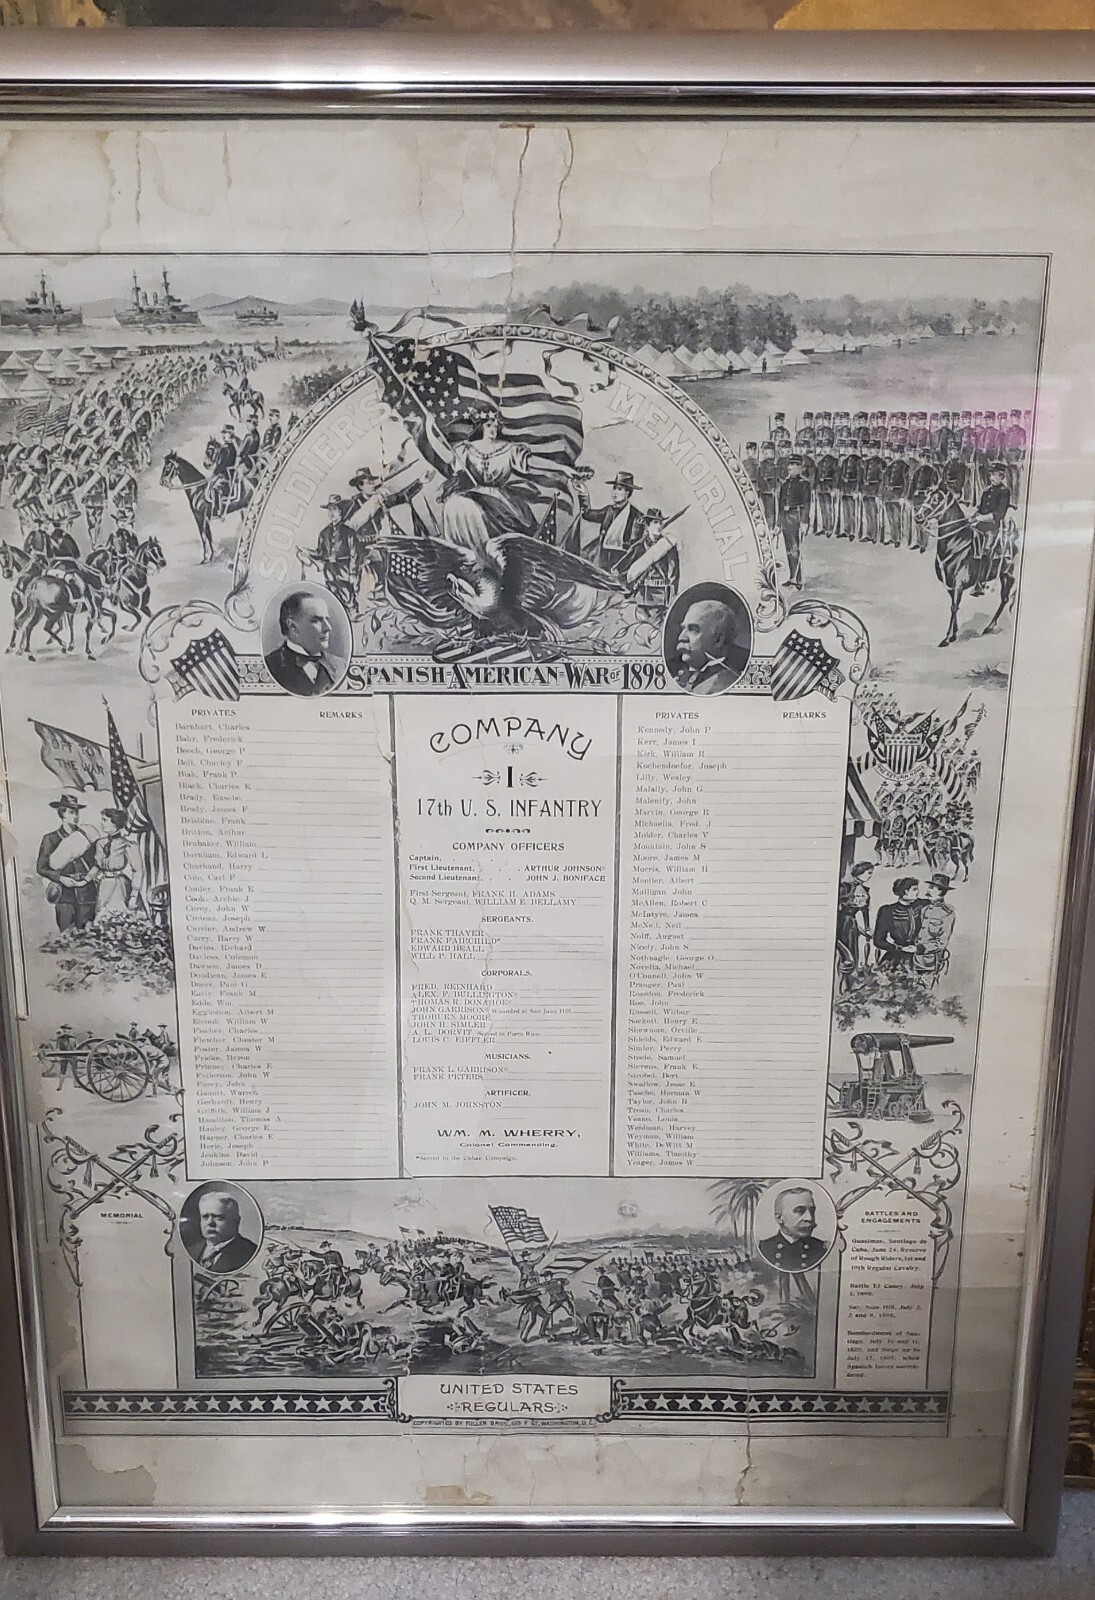 SOLDIER'S MEMORIAL
SPANISH-AMERICAN-WAR OF 1898
OFF TO
THE WAR
PRIVATES REMARKS
Barnhart, Charles
Bahr, Frederick
Beech, George P
Bell, Charley F
Bish, Frank P
Black, Charles E
Brady, Eusebe
Brady, James F
Brisbine, Frank
Britton, Arthur
Brubaker, William
Burnham, Edward L
Charband, Harry
Cole, Carl F
Conley, Frank E
Cook, Archie J
Corey, John W
Creteau, Joseph
Currier, Andrew W
Curry, Harry W
Davies, Richard
Davless, Coleman
Dawson, James D
Doudican, James E
Dover, Paul G
Early, Frank M
Eggleston, Albert M
Elcook, William W
Fischer, Charles
Fletcher, Chester M
Foster, James W
Fricke, Byron
Frinney, Charles E
Fullerton, John W
Furey, John
Gannitt, Warren
Gerhardt, Henry
Griffith, William J
Hamilton, Thomas A
Hanley, George E
Hapner, Charles E
Herle, Joseph
Jenkins, David
Johnson, John P
COMPANY
I
17th U. S. INFANTRY
COMPANY OFFICERS
Captain,
First Lieutenant, ARTHUR JOHNSON*
Second Lieutenant, JOHN J. BONIFACE
First Sergeant, FRANK H. ADAMS
Q. M. Sergeant, WILLIAM E. BELLAMY
SERGEANTS.
FRANK THAYER
FRANK FAIRCHILD*
EDWARD BEALL
WILL P. HALL
CORPORALS.
FRED. REINHARD
ALEX. F. BULLINGTON*
THOMAS R. DONAHOE*
JOHN GARRISON* Wounded at San Juan Hill
THOBURN MOORE
JOHN H. SIMLER
A. L. DORVIT Served in Porto Rico
LOUIS C. EIFFLER
MUSICIANS.
FRANK L. GARRISON*
FRANK PETERS
ARTIFICER.
JOHN M. JOHNSTON
WM. M. WHERRY,
Colonel Commanding.
*Served in the Cuban Campaign.
PRIVATES REMARKS
Kennedy, John P
Kerr, James I
Kirk, William R
Kochendoefor, Joseph
Lilly, Wesley
Malally, John G
Malenify, John
Marvin, George R
Michaelis, Fred. J
Molder, Charles V
Mountain, John S
Moore, James M
Morris, William H
Mueller, Albert
Mulligan, John
McAllen, Robert C
McIntyre, James
McNeil, Neil
Nolff, August
Nicely, John S
Nothnagle, George O
Norella, Michael
O'Connell, John W
Pranger, Paul
Rourdon, Frederick
Roe, John
Russell, Wilbur
Sockett, Henry E
Shewman, Orville
Shields, Edward E
Simler, Perry
Steele, Samuel
Stevens, Frank E
Strobel, Bert
Swallow, Jesse E
Tasche, Herman W
Taylor, John B
Treau, Charles
Veano, Louis
Weidman, Harvey
Weymon, William
White, DeWitt M
Williams, Timothy
Yeager, James W
THE RETURN HOME
MEMORIAL
BATTLES AND
ENGAGEMENTS
Guasimas, Santiago de
Cuba, June 24, Reserve
of Rough Riders, 1st and
10th Regular Cavalry.
Battle El Caney, July
1, 1898.
San Juan Hill, July 2,
3 and 8, 1898.
Bombardment of San-
tiago, July 10 and 11,
1898, and Siege up to
July 17, 1898, when
Spanish forces surren-
dered.
UNITED STATES
REGULARS
COPYRIGHTED BY FULLER BROS., 615 F ST, WASHINGTON, D.C.